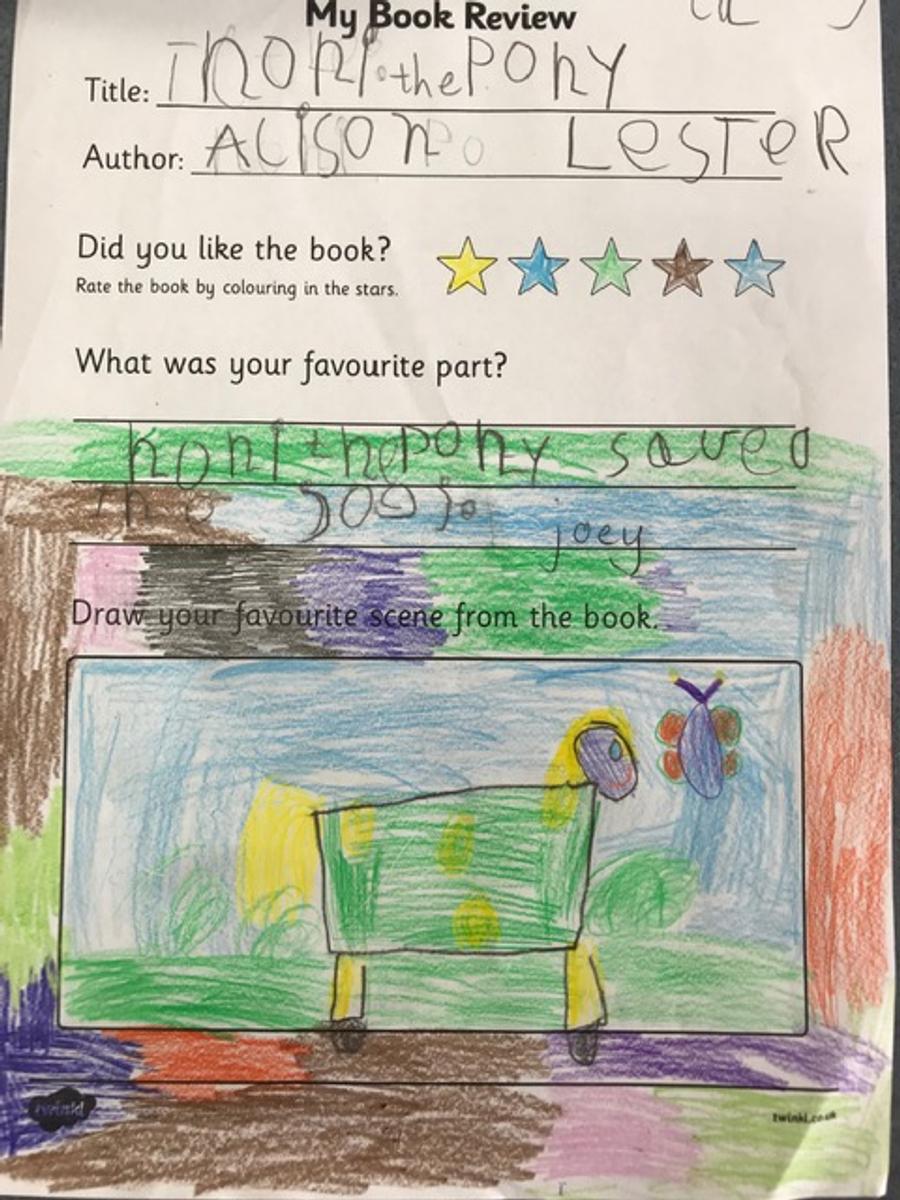 My Book Review
Title: noni the Pony
Author: Alison Lester
Did you like the book?
Rate the book by colouring in the stars.
What was your favourite part?
noni the pony saved
the joey
Draw your favourite scene from the book.
twinkl
twinkl.co.uk